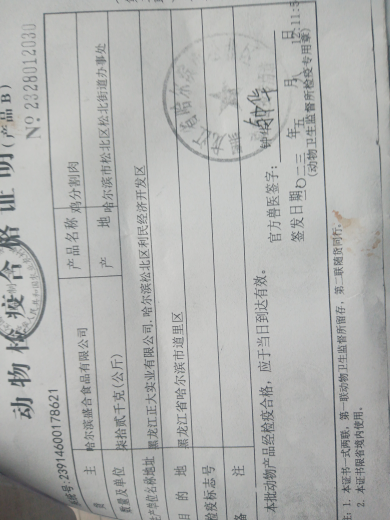 动物检疫合格证明(产品B)
№ 2328012030
编号: 23914600178621
货主 哈尔滨盛合食品有限公司 产品名称 鸡分割肉
数量及单位 柒拾贰千克(公斤) 产地 哈尔滨市松北区松北街道办事处
生产单位名称地址 黑龙江正大实业有限公司,哈尔滨松北区利民经济开发区
目的地 黑龙江省哈尔滨市道里区
检疫标志号
备注
本批动物产品经检疫合格,应于当日到达有效。
官方兽医签字:
签发日期 二三年五月
12:11:5
(动物卫生监督所检疫专用章)
注: 1. 本证书一式两联,第一联动物卫生监督所留存,第二联随货同行。
2. 本证书限省境内使用。